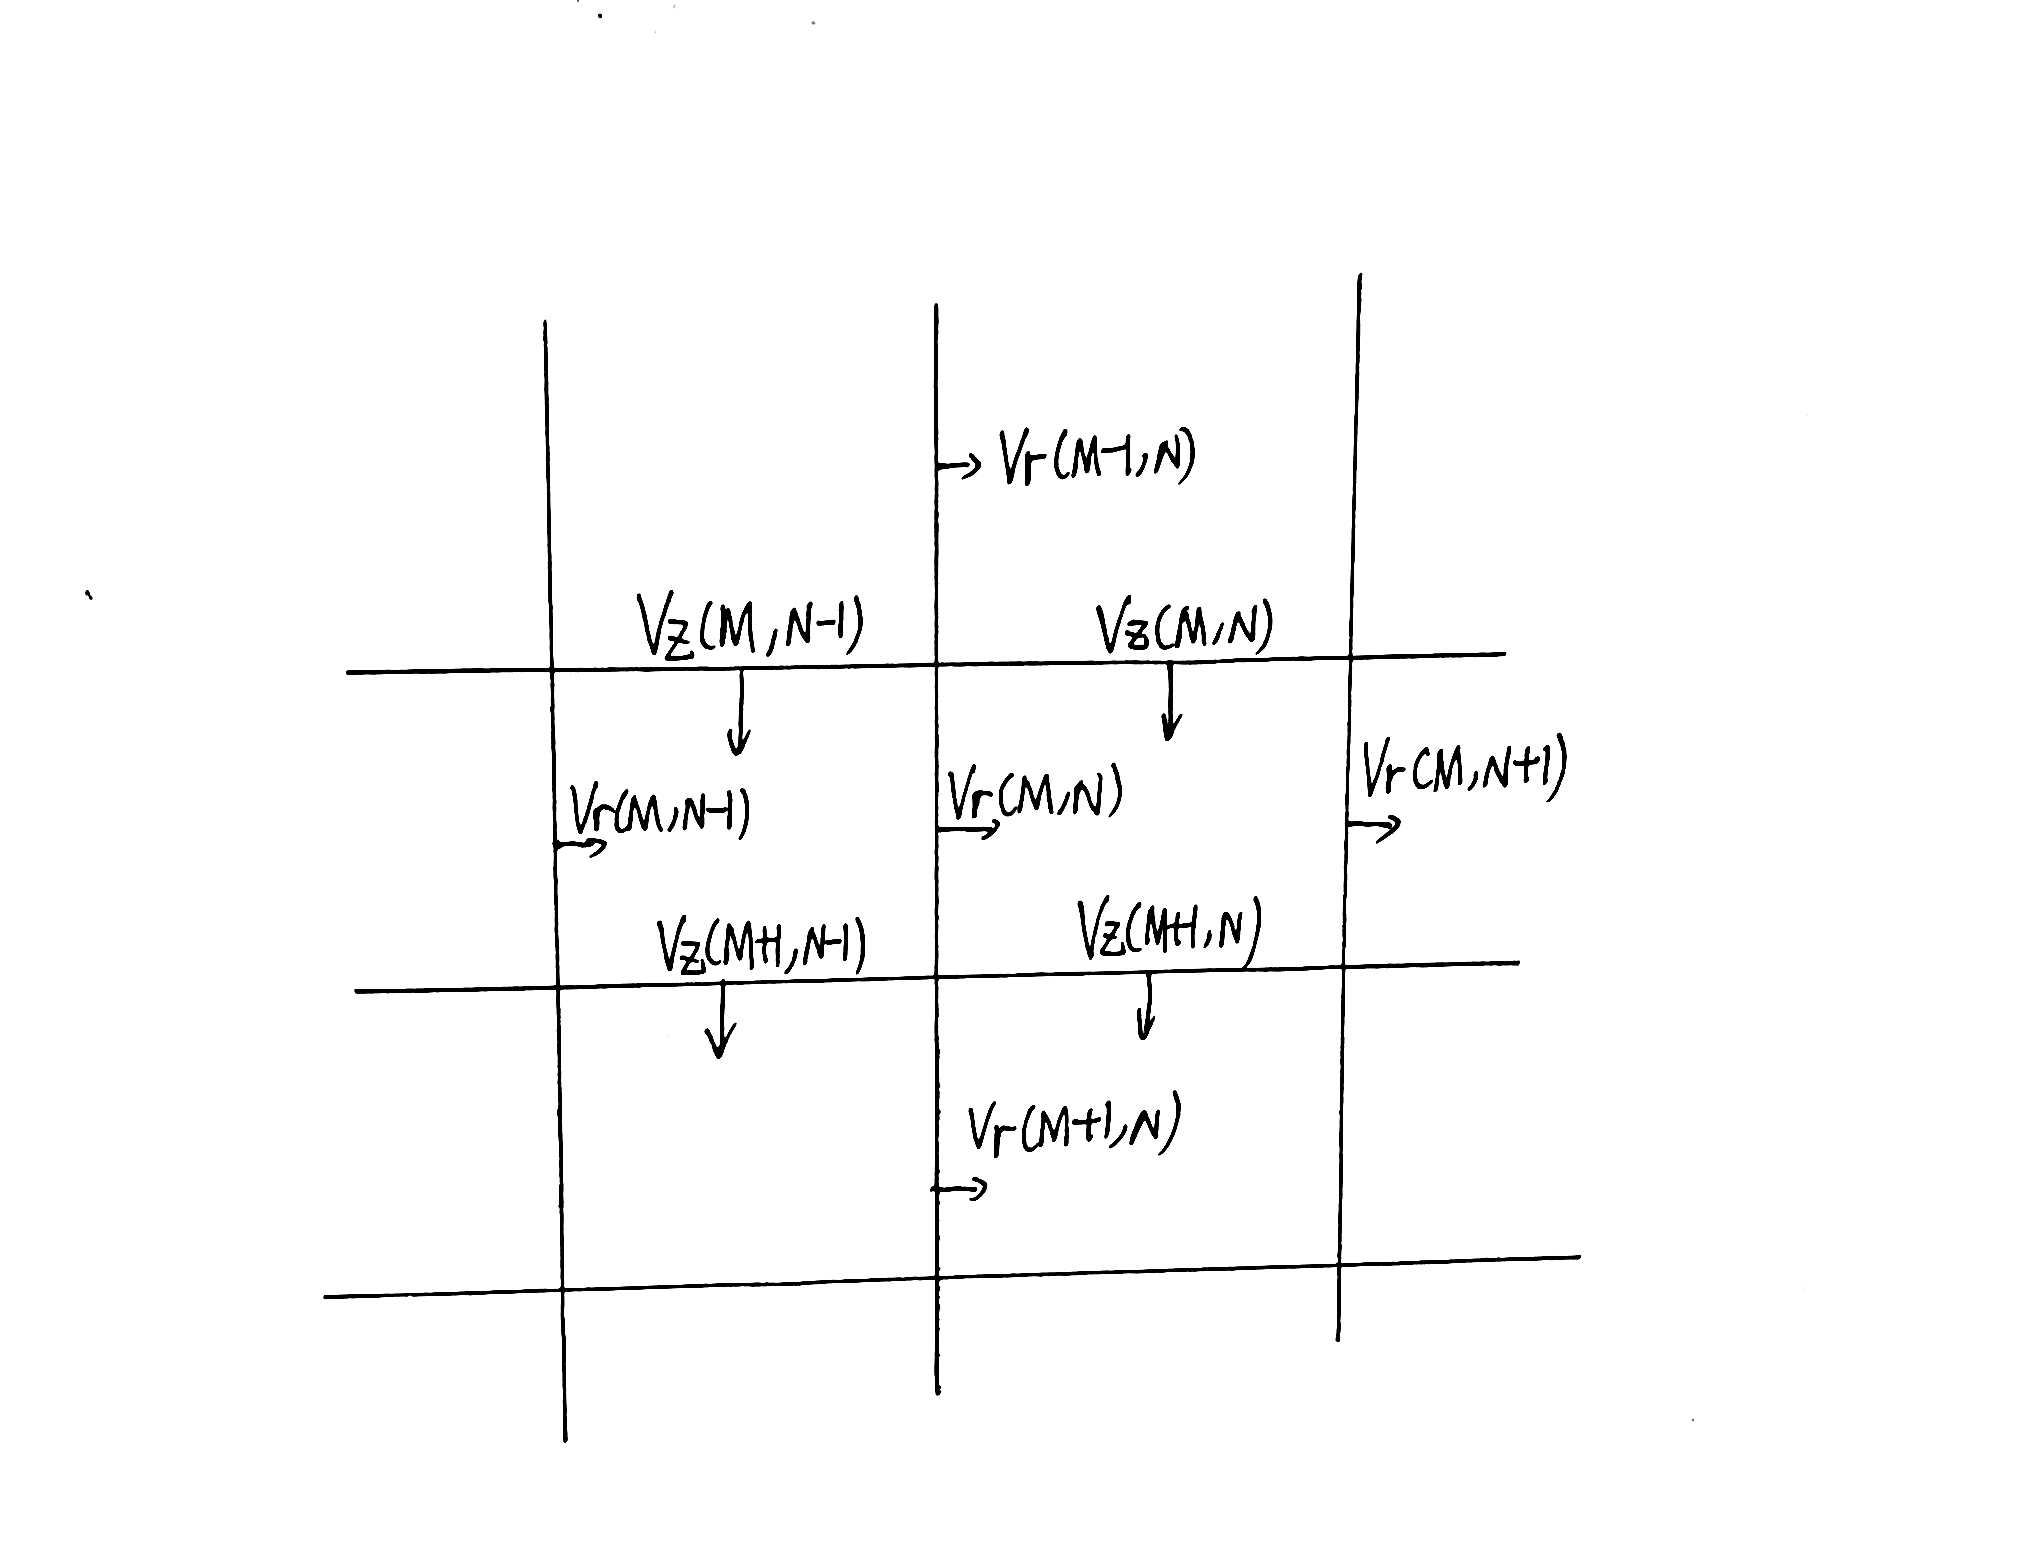 Vr(M-1,N)
Vz(M,N-1) Vz(M,N)
Vr(M,N-1) Vr(M,N) Vr(M,N+1)
Vz(M+1,N-1) Vz(M+1,N)
Vr(M+1,N)